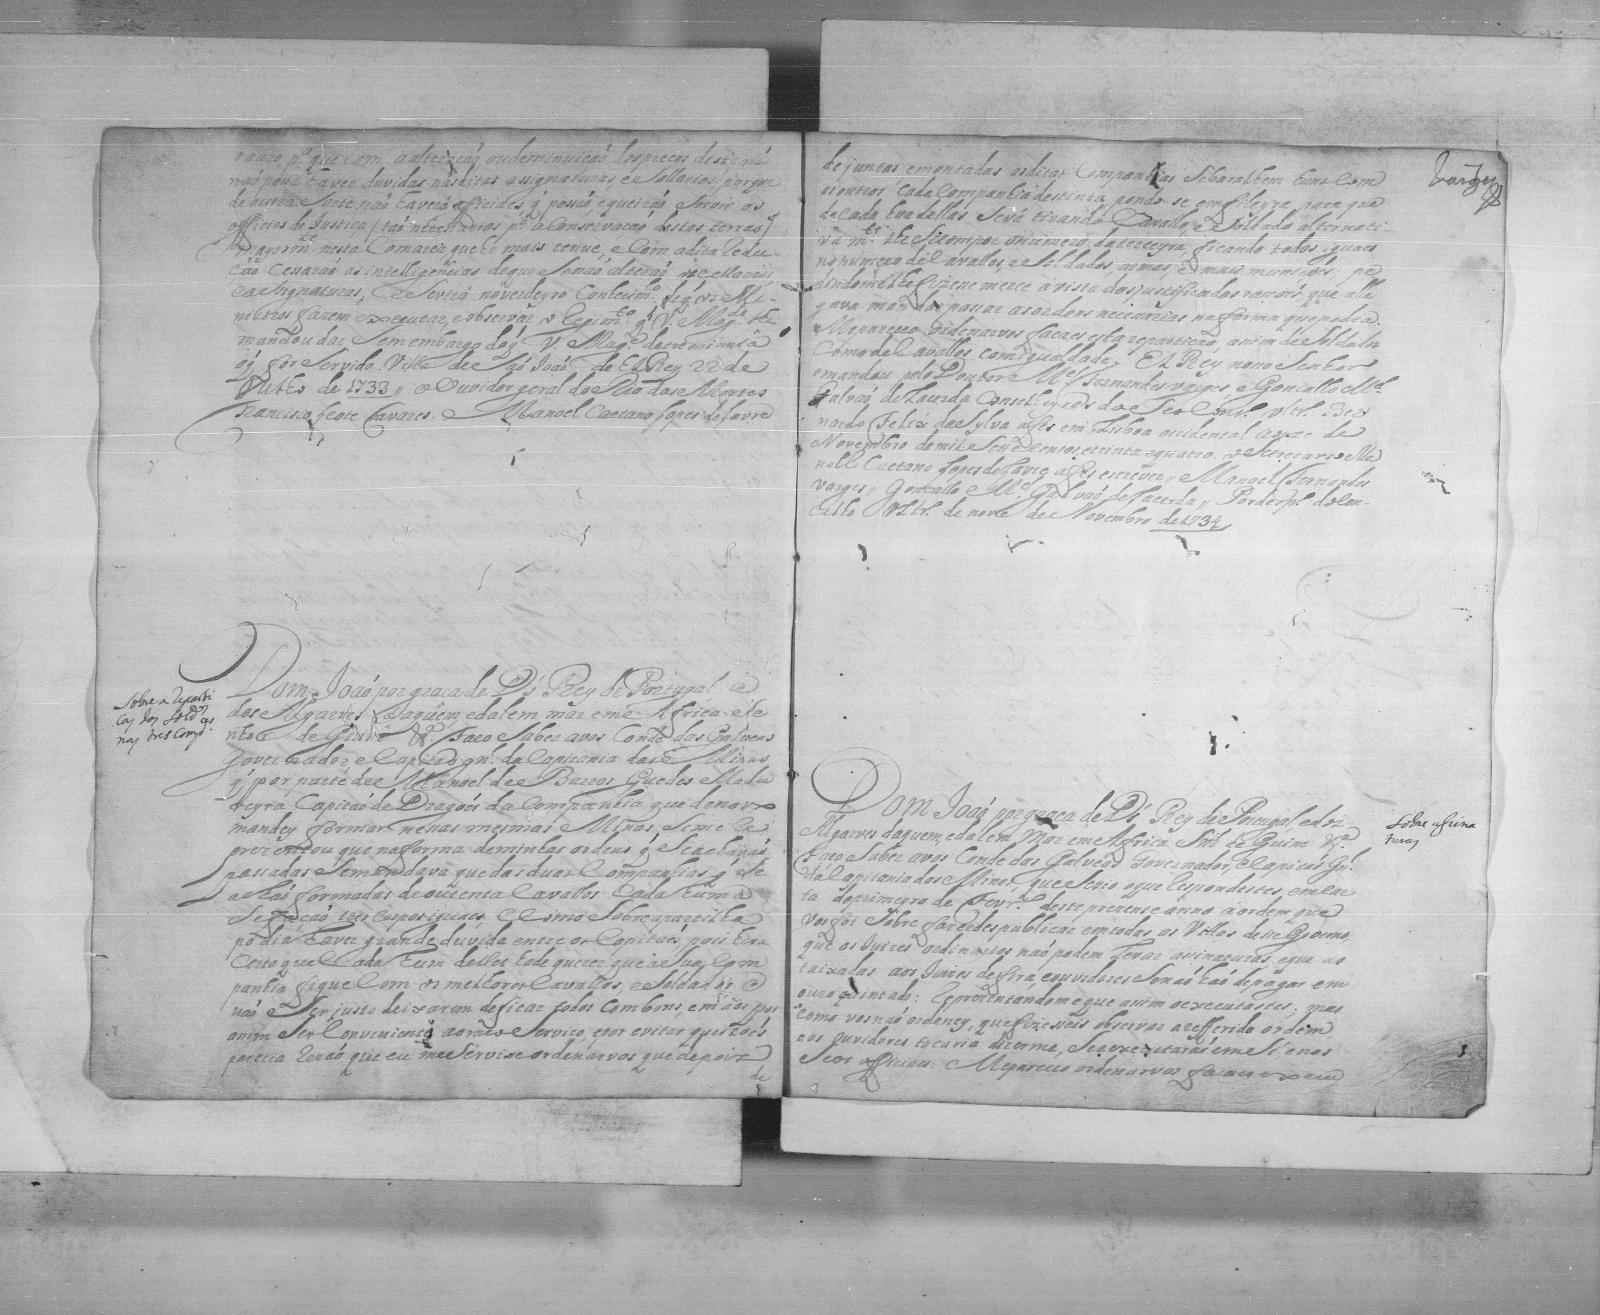 o ouro, p.ª que com a alteração ou deminuição dos preços deste não
não possa haver duvidas nas ditas assignaturas, e sellarios; porque
de outra sorte não haverá officiaes q̃ possão, e queirão servir os
officios de Justiça / tão necessarios p.ª a conservação destas terras /
mayorm.te nesta Comarca que he mais tenue, e com a dita redu-
ção cesarão as intelligencias de que senão
e asignaturas, e servirá no verdeyro conhecim.to
nistros fazem executar, e observar o Regim.to q̃ V. Mag.de lhe
mandou dar sem embargo do q̃ V. Mag.de determinará
o q̃ for servido. Villa de São João de El Rey 22 de
de 1733 // o Ouvidor geral do Rio das Mortes
Francisco Leote Tavares. e Manoel Caetano Lopes de Lavre
Sobre a reparti
ção dos Sold.os
nas tres Comp.as
Dom João por graça de D.s Rey de Portugal e
dos Algarves daquem, e dalem mar em Africa e Se
nhor de Guiné &.ª Faço saber a vos Conde das Galveas
Governador e Capitão gn.l da Capitania das Minas
q̃ por parte de Manoel de Barros Guedes Madu
reyra Capitão de Dragões da Companhia que de novo
mandey formar nessas mesmas Minas, se me re
prezentou que na forma de minhas ordens q̃ se achavão
passadas se mandava que das duas Companhias q̃ se
achão formadas de outenta Cavallos cada huma
se fação tres corpos iguaes, e como sobre a partilha
podia haver grande duvida entre os Capitaes, pois hera
certo que cada hum delles hade querer que a sua Com
panhia fique com os melhores Cavallos, e Soldados e
não ser justo deixarem de ficar todos com bons, e maos por
assim ser conveniente a o meo serviço, e por evitar questoes
parecia rezão que eu me servise ordenarvos que depois
de
Vargez
de juntas e montadas as ditas Companhias se baralhem huns com
os outros cada Companhia destinta, pondo-se em fileyra, para que
de cada hua dellas se vá tirando Cavallo, e Soldado alternati-
vam.te the se compor o numero da terceyra, ficando todos iguaes
no numero de Cavallos, e Soldados, armas, e mais muniçoes; pe
dindome lhe fizese merce a vista dos justificados razoes, que alle
gava mandar passar as ordens necesarias na forma que pedia.
Mepareceo ordenarvos façaes esta repartição, asim de Soldados
como de Cavallos com igualdade. El Rey nosso Senhor
o mandou pelo Doutor M.el Fernandes Varges, e Gonçallo M.el
Galvão de Lacerda Conselheyros do seo Cons.o Ultr.o Ber
nardo Felix da Sylva a fes em Lisboa occidental a onze de
Novembro de mil e setecentos, e trinta e quatro. o Secretario Ma
noel Caetano Lopes de Lavre a fes escrever // Manoel Fernandes
Varges // Gonçallo M.el Galvão de Lacerda // Por desp.o do Con-
celho Ultr.o de nove de Novembro de 1734 //
Sobre asina
turas
Dom João por graça de D.s Rey de Portugal e dos
Algarves daquem, e dalem mar em Africa Snr. de Guiné &.ª
Faço saber a vos Conde das Galveas Governador, e Capitão Gn.l
da Capitania das Minas, que se vio o que respondestes, em car
ta do primeyro de Fevr.o deste prezente anno á ordem que
vos foi sobre fazerdes publicar em todas as Villas desse Governo,
que os Juizes ordinarios não podem levar asinaturas, e que as
taixadas aos Juizes de fora, e ouvidores senão hão de pagar em
ouro quintado: Reprezentandome que asim o executastes; mas
como vos não ordeney, que fizesseis observar a refferida ordem
aos ouvidores tocaria dizerme, se a executarão em si, e nos
seos officiaes: Mepareceo ordenarvos façaes execu